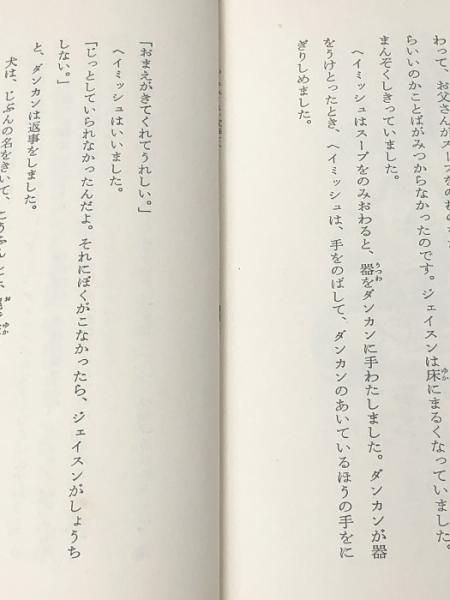 わって、お父さんがスープをのむの
らいいのかことばがみつからなかったのです。ジェイスンは床にまるくなっていました。
まんぞくしきっていました。
ヘイミッシュはスープをのみおわると、器をダンカンに手わたしました。ダンカンが器
をうけとったとき、ヘイミッシュは、手をのばして、ダンカンのあいているほうの手をに
ぎりしめました。
「おまえがきてくれてうれしい。」
ヘイミッシュはいいました。
「じっとしていられなかったんだよ。それにぼくがこなかったら、ジェイスンがしょうち
しない。」
と、ダンカンは返事をしました。
犬は、じぶんの名をきいて、